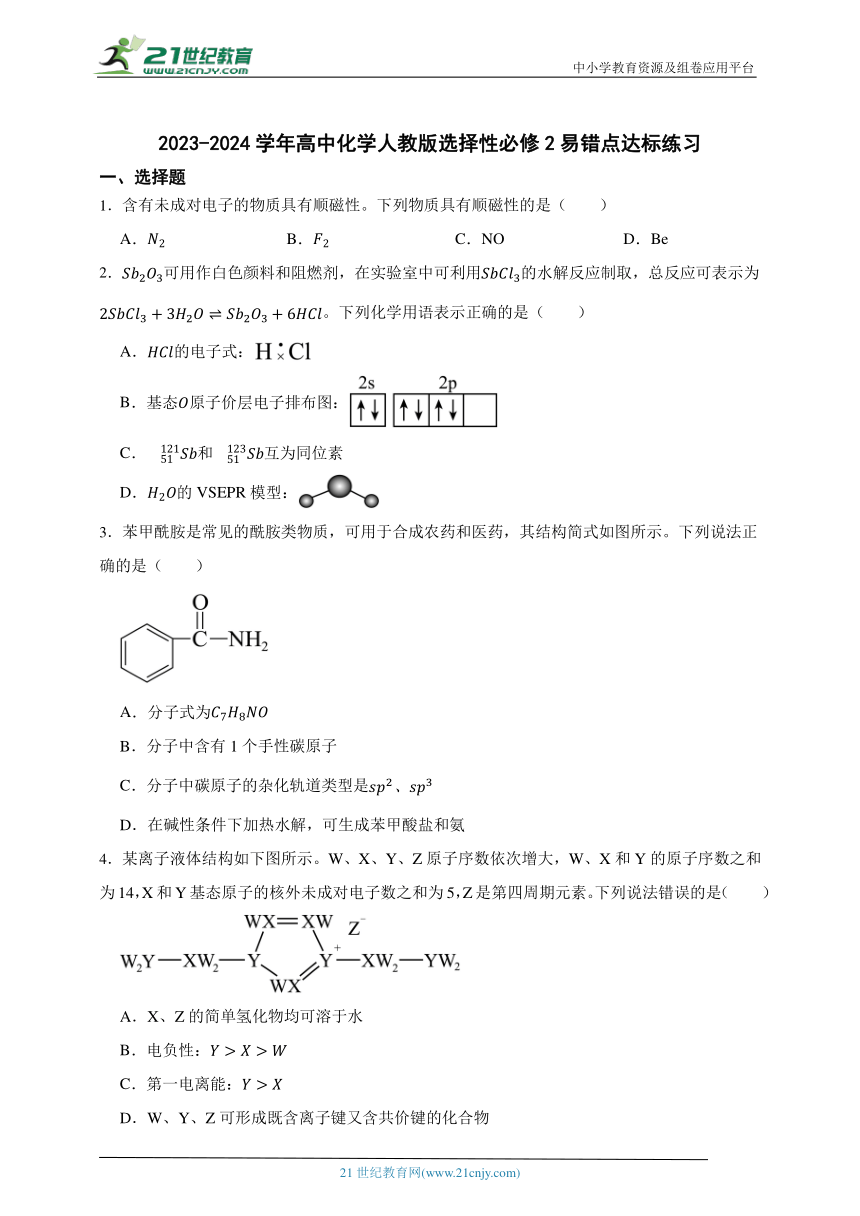 21世纪教育
WWW.21CNJY.COM
中小学教育资源及组卷应用平台
2023-2024 学年高中化学人教版选择性必修 2 易错点达标练习
一、选择题
1．含有未成对电子的物质具有顺磁性。下列物质具有顺磁性的是（　　）
A．N₂　B．F₂　C．NO　D．Be
2．Sb₂O₃可用作白色颜料和阻燃剂，在实验室中可利用SbCl₃的水解反应制取，总反应可表示为
2SbCl₃ + 3H₂O ⇌ Sb₂O₃ + 6HCl。下列化学用语表示正确的是（　　）
A．HCl的电子式：H•×Cl
2s 2p
B．基态O原子价层电子排布图：↑↓ ↑↓ ↑↓
C．¹²¹₅₁Sb和 ¹²³₅₁Sb互为同位素
D．H₂O的 VSEPR 模型：
3．苯甲酰胺是常见的酰胺类物质，可用于合成农药和医药，其结构简式如图所示。下列说法正
确的是（　　）
O
C—NH₂
A．分子式为C₇H₈NO
B．分子中含有 1 个手性碳原子
C．分子中碳原子的杂化轨道类型是sp²、sp³
D．在碱性条件下加热水解，可生成苯甲酸盐和氨
4．某离子液体结构如下图所示。W、X、Y、Z 原子序数依次增大，W、X 和 Y 的原子序数之和
为 14，X 和 Y 基态原子的核外未成对电子数之和为 5，Z 是第四周期元素。下列说法错误的是（　　）
WX═XW Z⁻
W₂Y—XW₂—Y Y⁺—XW₂—YW₂
WX
A．X、Z 的简单氢化物均可溶于水
B．电负性：Y > X > W
C．第一电离能：Y > X
D．W、Y、Z 可形成既含离子键又含共价键的化合物
21 世纪教育网(www.21cnjy.com)